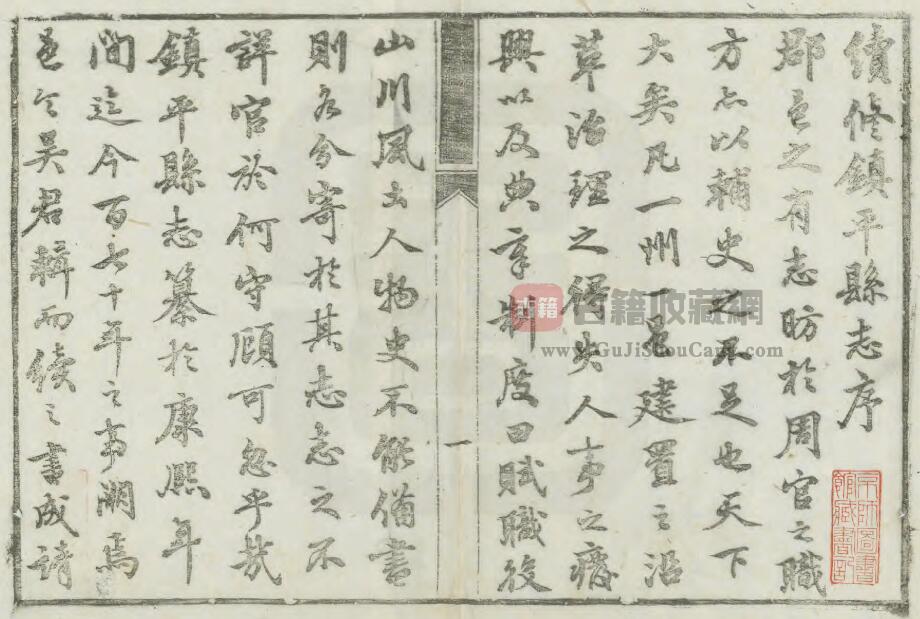 續修鎮平縣志序
郡邑之有志昉於周官之職
方所以輔史之不足也天下
大矣凡一州一邑建置之沿
革治理之得失人事之癈
興以及典章制度田賦職役
山川風土人物史不能備書
則各分寄於其志志之不
詳官於何守顧可忽乎哉
鎮平縣志纂於康熙年
間迄今百七十年之事闕焉
邑令吳君輯而續之書成請
一
京師圖書館藏書記
古籍
古籍收藏網
www.GuJiShouCang.com